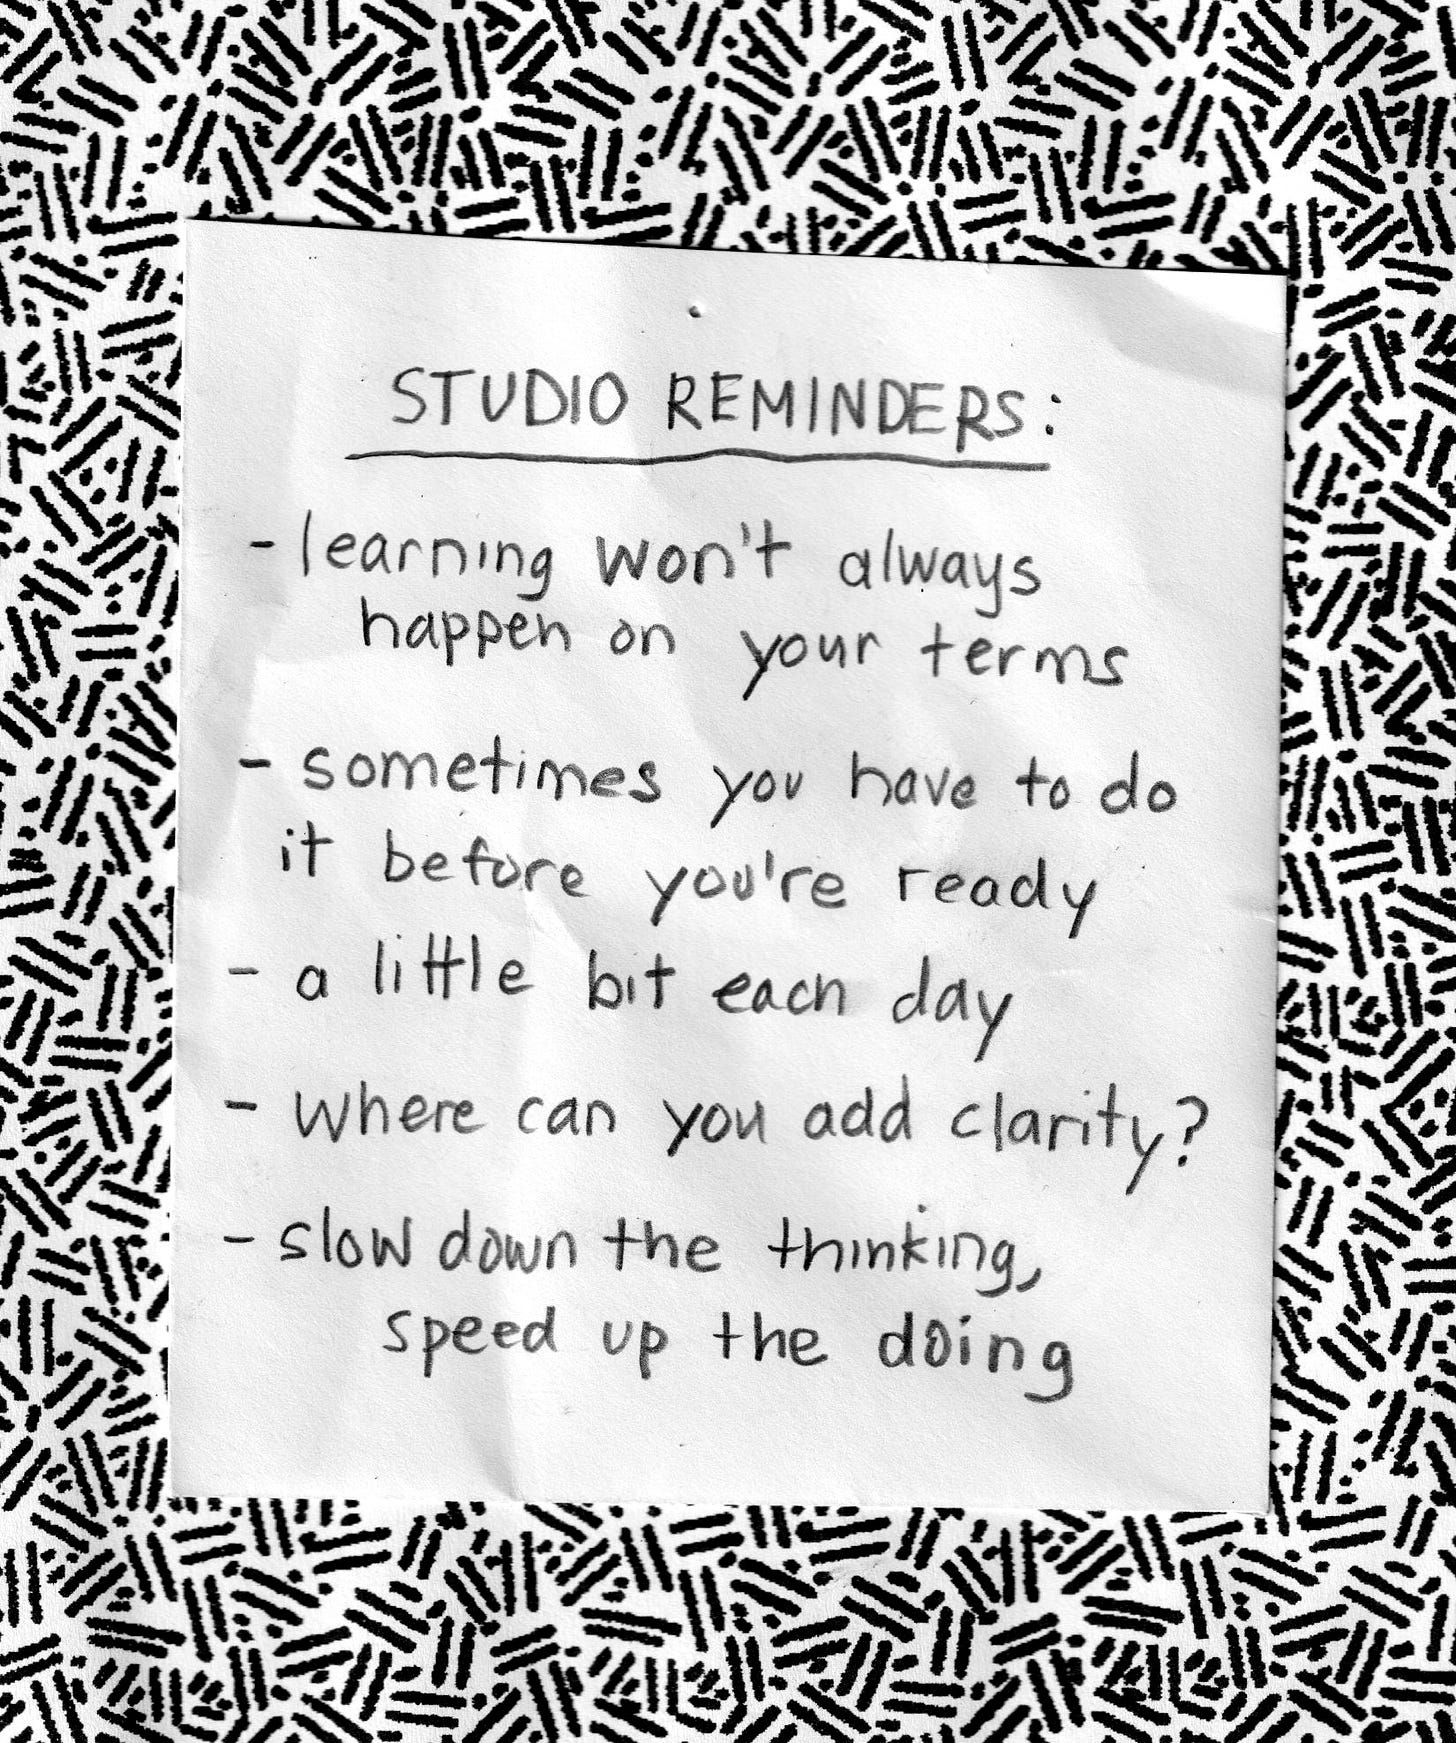 STUDIO REMINDERS:
- learning won't always
happen on your terms
- sometimes you have to do
it before you're ready
- a little bit each day
- where can you add clarity?
- slow down the thinking,
speed up the doing